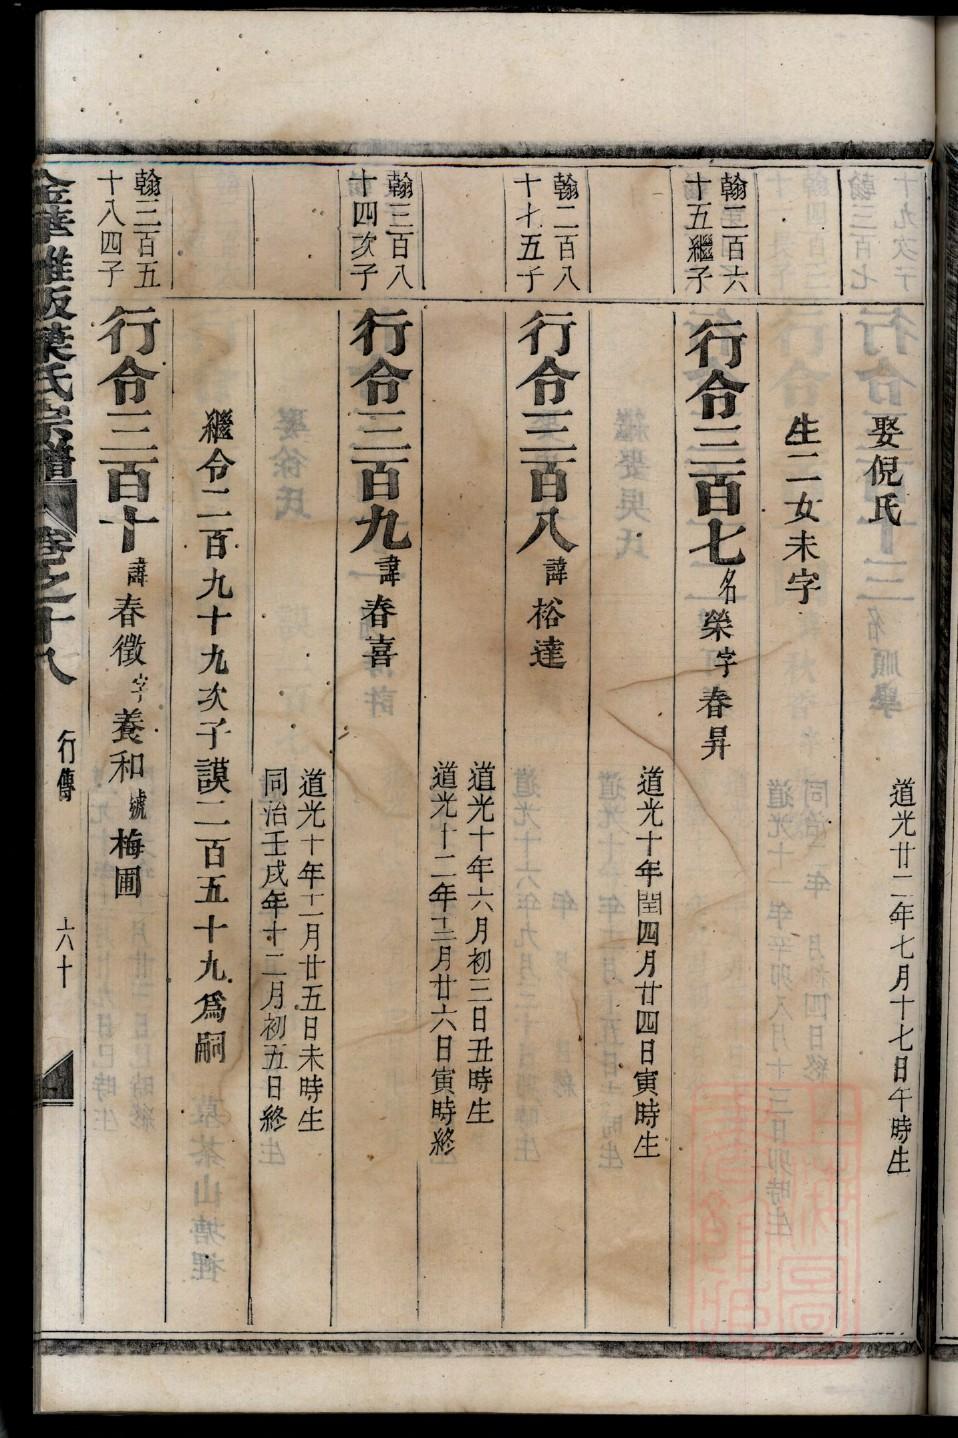 娶倪氏
道光廿二年七月十七日午時生
生二女未字
翰二百六
十五繼子
行令三百七名榮字春昇
道光十年閏四月廿四日寅時生
翰二百八
十七五子
行令三百八諱裕達
道光十年六月初三日丑時生
道光十二年三月廿六日寅時終
翰三百八
十四次子
行令三百九諱春喜
道光十年二月廿五日未時生
同治壬戌年十二月初五日終
繼令二百九十九次子謨二百五十九爲嗣
翰三百五
十八四子
行令三百十諱春徵字養和號梅圃
氏宗譜 卷之十八 行傳 六十